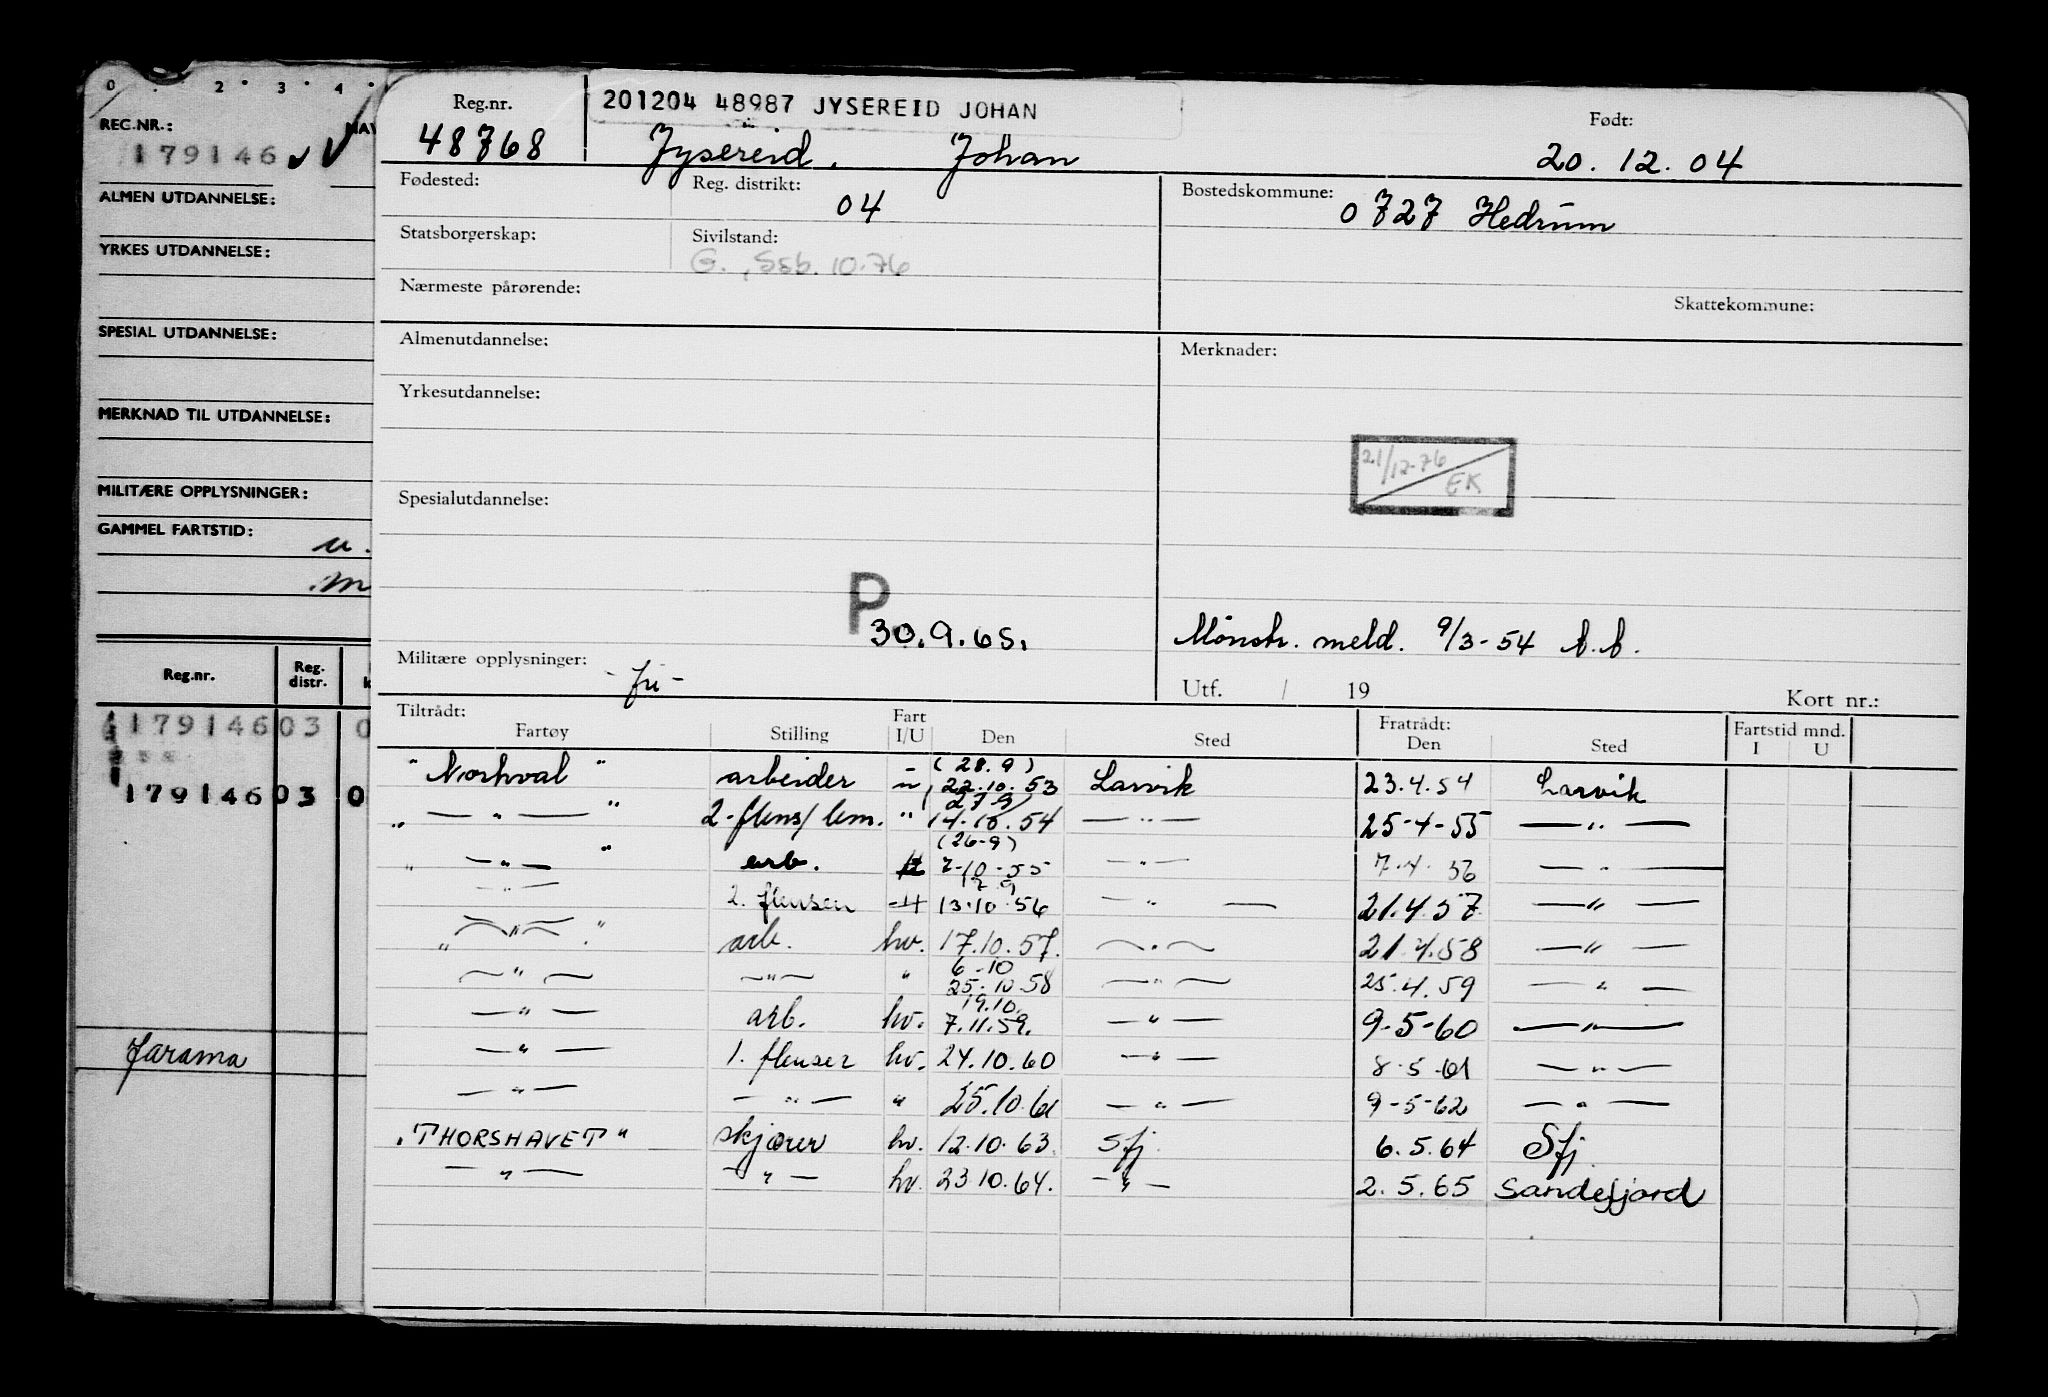 0 . 2 . 3 . 4 .
REG.NR.:
179146
ALMEN UTDANNELSE:
YRKES UTDANNELSE:
SPESIAL UTDANNELSE:
MERKNAD TIL UTDANNELSE:
MILITÆRE OPPLYSNINGER:
GAMMEL FARTSTID:
u.
m
Reg.nr. Reg. distr.
179146 03 0
179146 03 0
Jarama
Reg.nr. 201204 48987 JYSEREID JOHAN Født:
48768 Jysereid, Johan 20.12.04
Fødested: Reg. distrikt: 04 Bostedskommune: 0727 Hedrum
Statsborgerskap: Sivilstand:
G., Ssb. 10.76
Nærmeste pårørende: Skattekommune:
Almenutdannelse: Merknader:
Yrkesutdannelse:
21/12-76 EK
Spesialutdannelse:
P
30.9.65. Mønstr. meld. 9/3-54 A.A.
Militære opplysninger: -fri-
Utf. / 19 Kort nr.:
Tiltrådt: Fart Fratrådt: Fartstid mnd.
Fartøy Stilling I/U Den Sted Den Sted I U
(28.9)
"Norhval" arbeider - " - 22.10.53 Larvik 23.4.54 Larvik
(27.9)
" — " — " 2-flens/lem. " 14.10.54 — " — 25-4-55 — " —
(26-9)
" — " — " arb. 7-10-55 — " — 7.4.56 — " —
17.9
— " — 2. flenser 13.10.56 — " — 21.4.57 — " —
" — " — " arb. hv. 17.10.57. — " — 21.4.58 — " —
6-10
— " — — " — " 25.10.58 — " — 25.4.59 — " —
19.10.
— " — arb. hv. 7.11.59. — " — 9-5-60 — " —
— " — 1. flenser hv. 24.10.60 — " — 8-5-61 — " —
— " — — " — " 25.10.61 — " — 9-5-62 — " —
"THORSHAVET" skjærer hv. 12.10.63. Sfj. 6.5.64 Sfj.
— " — — " — hv. 23.10.64. — " — 2.5.65 Sandefjord